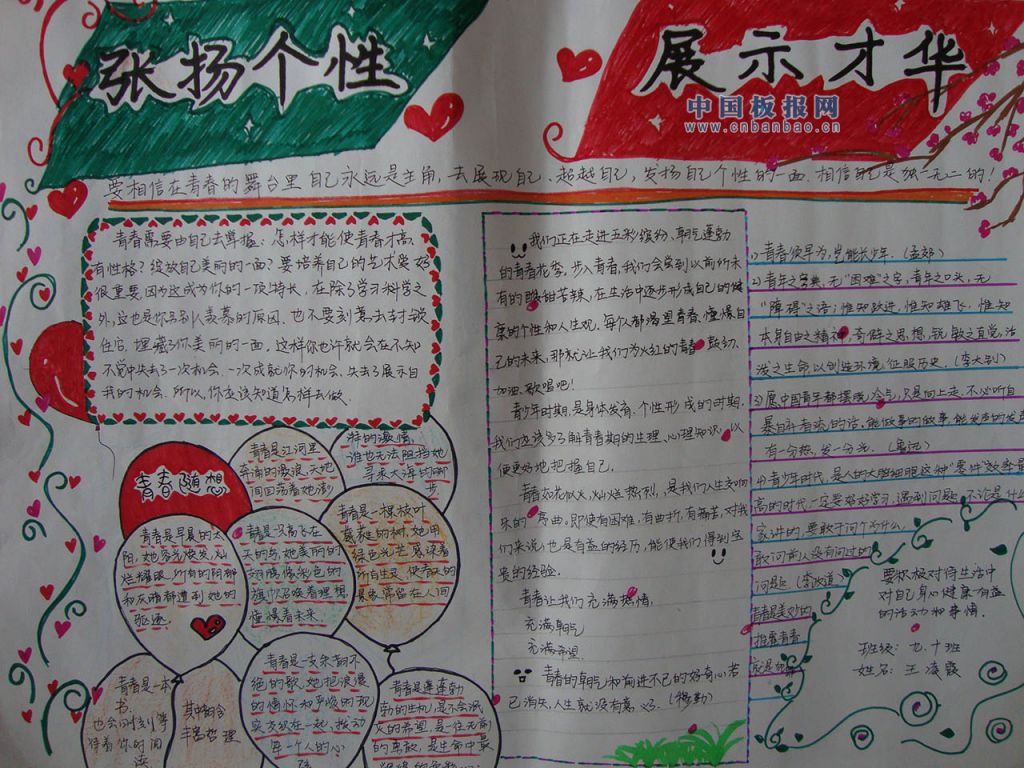 张扬个性
展示才华
中国板报网
www.cnbanbao.cn
要相信在青春的舞台里自己永远是主角,去展现自己、超越自己,发扬自己个性的一面.相信自己是独一无二的!
青春需要由自己去掌握:怎样才能使青春才高
有性格?绽放自己美丽的一面?要培养自己的艺术爱好
很重要因为这成为你的一项特长,在除了学习科学之
外,这也是你另别人羡慕的原因.也不要刻意去封锁
住它,埋藏了你美丽的一面,这样你也许就会在不知
不觉中失去了一次机会,一次成就你的机会,失去了展示自
我的机会.所以,你应该知道怎样去做.
青春随想
青春是江河里
奔涌的激浪,天地
间回荡着她澎
湃的激情,
谁也无法阻挡她
寻求大海的脚
步.
青春是早晨的太
阳,她容光焕发,灿
烂耀眼,所有的阴郁
和灰暗都遭到她的
驱逐.
青春是只高飞在
天的鸟,她美丽的
翅膀像彩色的
旗帜召唤着理想,
憧憬着未来.
青春是一棵枝叶
葳蕤的树,她用
绿色光芒
所有生灵,使春天的
常留在人间
青春是一本
书.
也会时刻等
待着你的阅
读
其中的含
丰富哲理
青春是一支永朝不
绝的歌,她把浪漫
的情怀和严峻的现
实交织在一起,拨动
每一个人的心
青春是蓬蓬勃
勃的生机,是不会泯
灭的希望,是一往无前
的勇敢,是生命中最
我们正在走进五彩缤纷、朝气蓬勃
的青春花季,步入青春,我们会尝到以前所未
有的酸甜苦辣,在生活中逐步形成自己的健
康的个性和人生观.每个人都渴望青春,憧憬自
己的未来,那就让我们为火红的青春鼓劲、
加油、歌唱吧!
青少年时期,是身体发育、个性形成的时期.
我们应该多了解青春期的生理、心理知识,以
便更好地把握自己.
青春如花似火,灿烂热烈,是我们人生交响
曲的序曲,即使有困难,有曲折,有痛苦,对我
们来说,也是有益的经历,能使我们得到宝
贵的经验.
青春让我们充满热情.
充满朝气
充满希望
青春的朝气和前进不已的好奇心若
已消失,人生就没有意义.(穆勒)
1)青春须早为,岂能长少年.(孟郊)
2)青年之字典,无“困难”之字,青年之口头,无
“障碍”之语;惟知跃进,惟知雄飞,惟知
本身自由之精神,奇僻之思想,锐敏之直觉,活
泼之生命,以创造环境,征服历史.(李大钊)
3)愿中国青年都摆脱冷气,只是向上走,不必听自
暴自弃者流的话,能做事的做事,能发声的发声
有一分热,发一分光.(鲁迅)
4)青少年时代,是人的大脑细胞这种“零件”效率最
高的时代一定要好好学习.遇到问题,不论是什么
家讲的,要敢于问个为什么.
敢问前人没有问过的
问题.(李政道)
青春是美妙的
挥霍青春
就是
要积极对待生活中
对自己身心健康有益
的活动和事情.
班级:七.十班
姓名:王凌霞